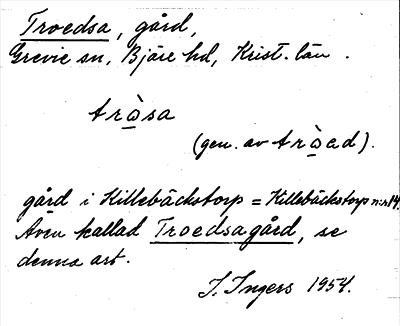 Troedsa, gård,
Grevie sn, Bjäre hd, Krist. län.
tròsa
(gen. av tròad).
gård i Killebäckstorp = Killebäckstorp nr 14.
Även kallad Troedsagård, se
denna art.
I. Ingers 1954.